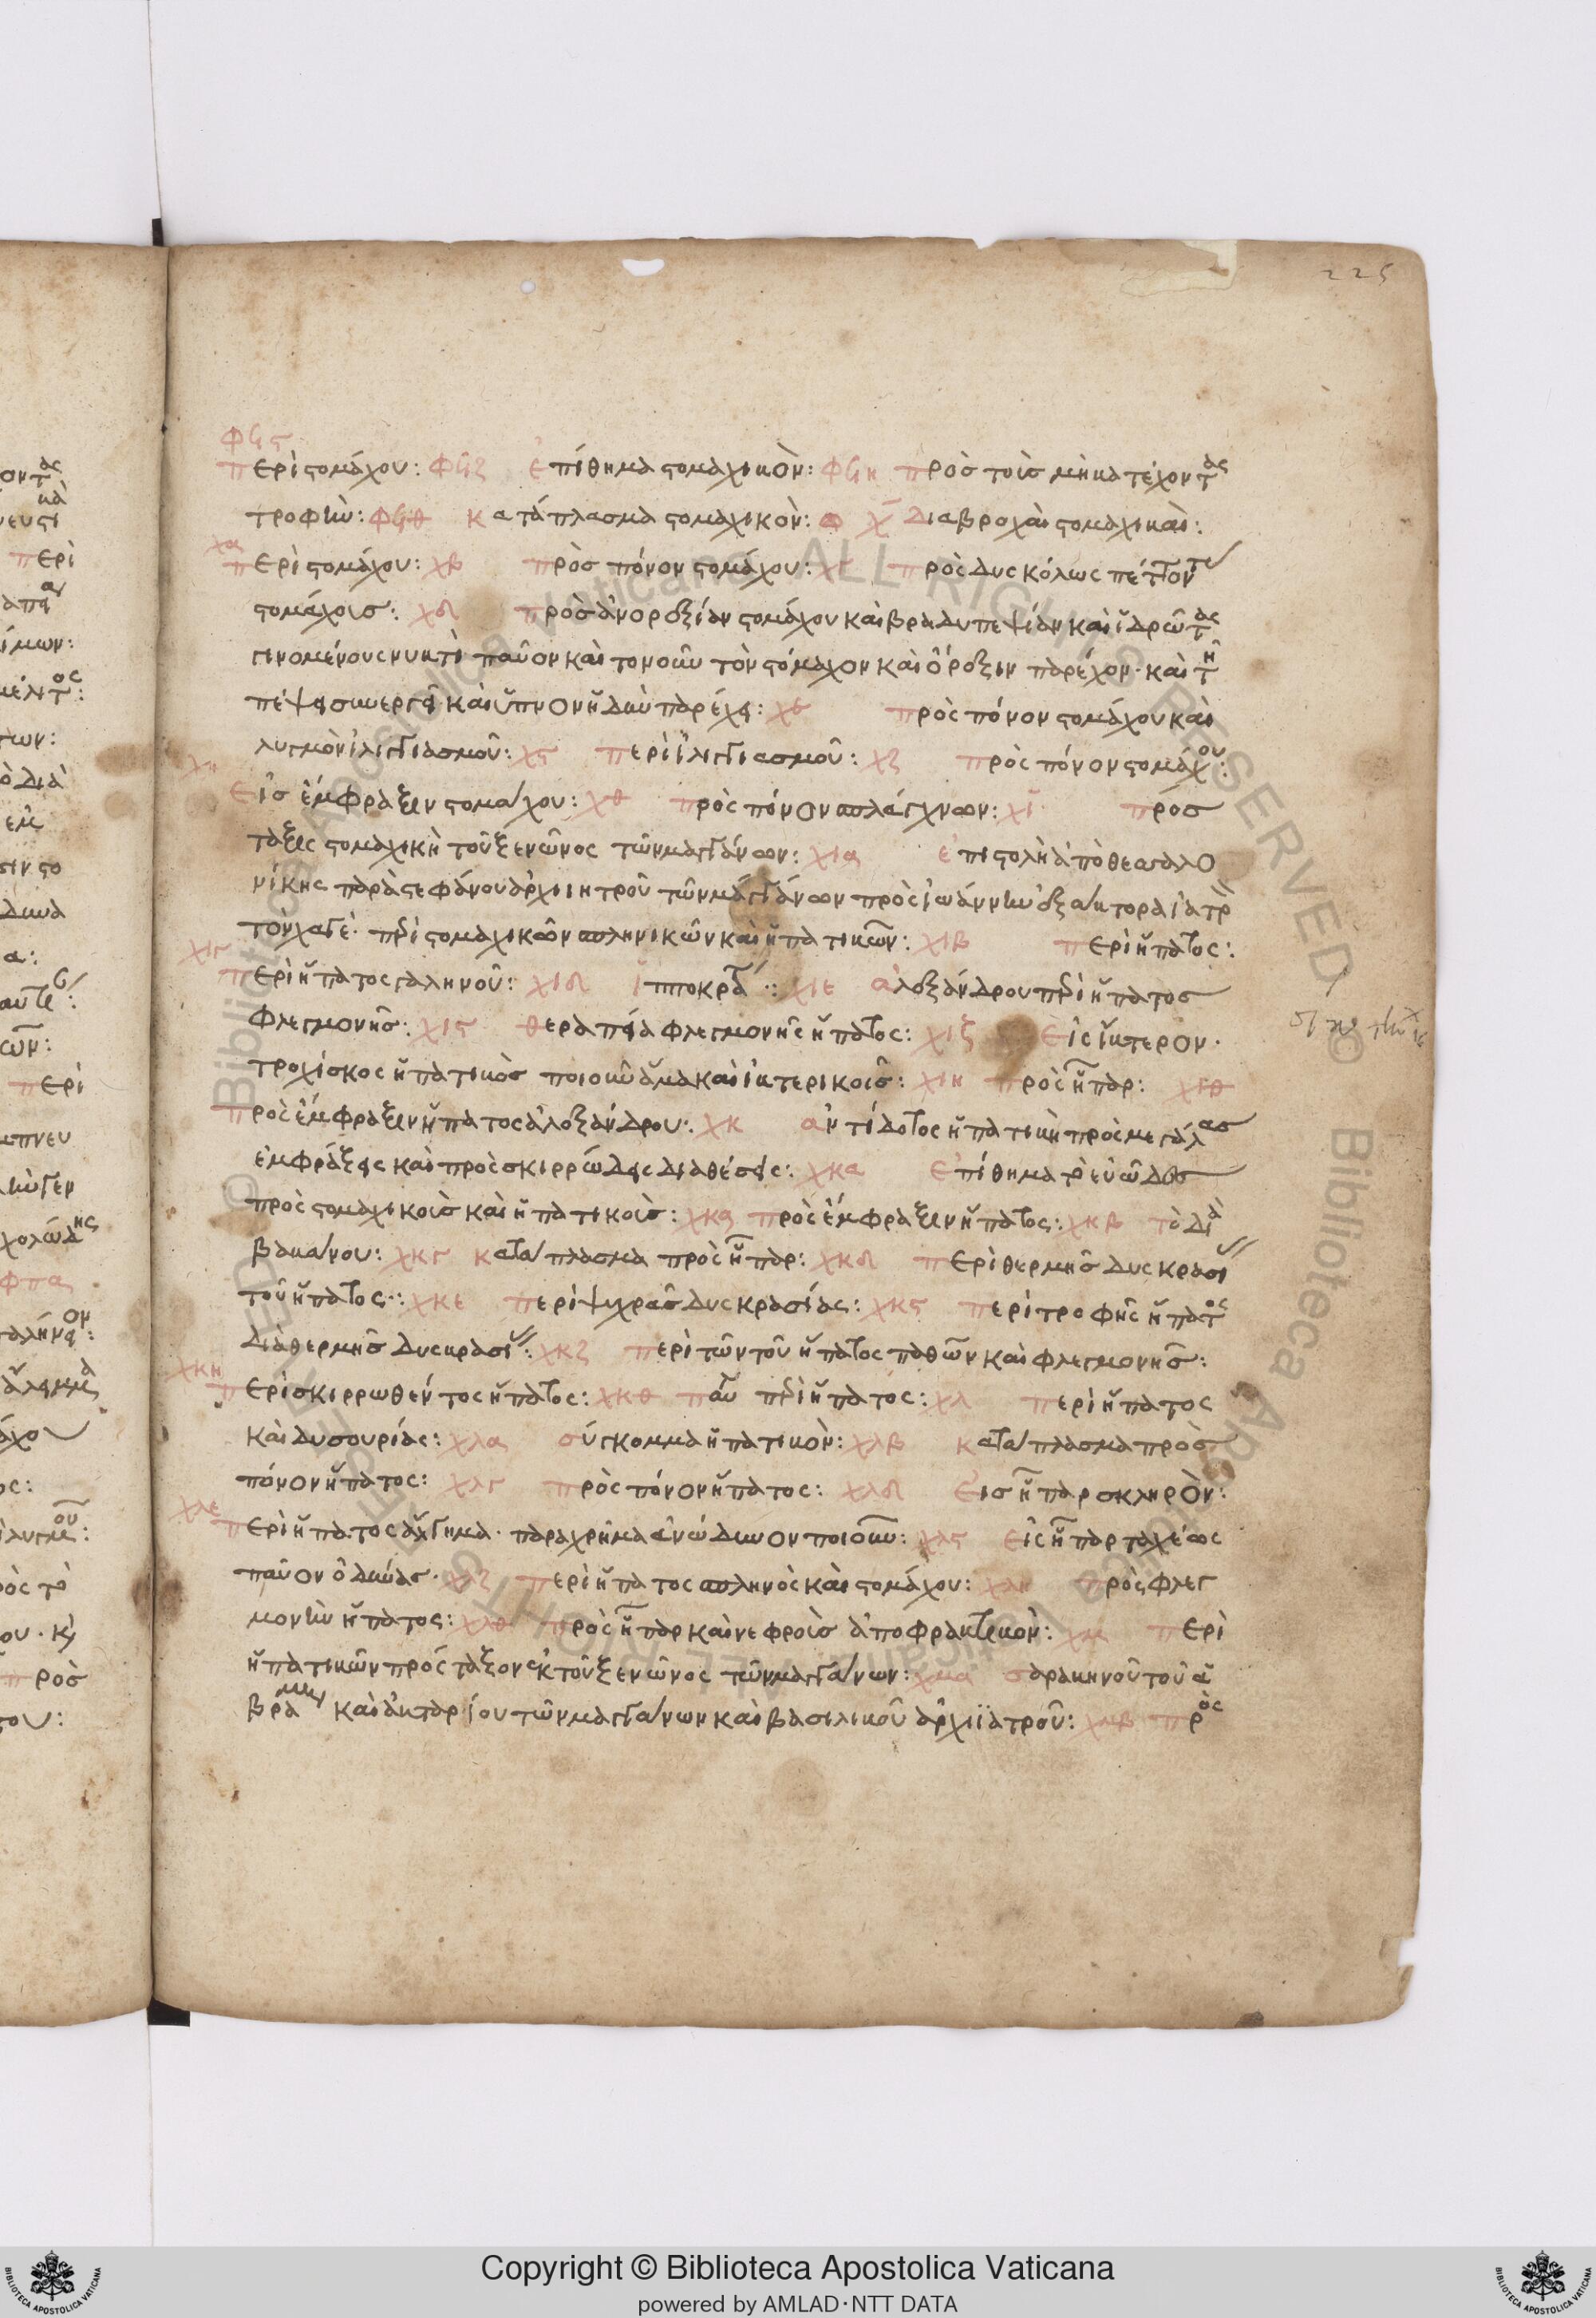 225
φϟϛ
περὶ στομάχου: φϟζ ἐπίθημα στομαχικὸν: φϟη πρὸς τοὺς μὴ κατέχοντας
τροφὴν: φϟθ κατάπλασμα στομαχικὸν: χ διαβροχαὶ στομαχικαὶ:
χα
περὶ στομάχου: χβ πρὸς πόνον στομάχου: χγ πρὸς δυσκόλως πέττοντ
στομάχοις: χδ πρὸς ἀνορεξίαν στομάχου καὶ βραδυπεψίαν καὶ ἱδρῶτας
γινομένους νυκτὶ παῦον καὶ τονοῦν τὸν στόμαχον καὶ ὄρεξιν παρέχον· καὶ τῇ
πέψει συνεργεῖ· καὶ ὕπνον ἡδὺν παρέχει: χε πρὸς πόνον στομάχου καὶ
λυγμὸν ἰλιγγιασμοῦ: χϛ περὶ ἰλιγγιασμοῦ: χζ πρὸς πόνον στομάχου:
χη
εἰς ἔμφραξιν στομάχου: χθ πρὸς πόνον σπλάγχνων: χι πρόσ
ταξις στομαχικὴ τοῦ ξενῶνος τῶν μαγγάνων: χια ἐπιστολὴ ἀπὸ θεσσαλο
νίκης παρὰ στεφάνου ἀρχιιητροῦ τῶν μαγγάνων πρὸς ἰωάννην ἐξάκτορα ἰατρ
τὸν χαγέ· περὶ στομαχικῶν σπληνικῶν καὶ ἡπατικῶν: χιβ περὶ ἥπατος:
χιγ
περὶ ἥπατος γαληνοῦ: χιδ ἱπποκρά: χιε ἀλεξάνδρου περὶ ἥπατος
φλεγμονῆς: χιϛ θεραπεία φλεγμονῆς ἥπατος: χιζ εἰς ἴκτερον·
τροχίσκος ἡπατικὸς ποιοῦν ἅμα καὶ ἰκτερικοῖς: χιη πρὸς ἧπαρ: χιθ
πρὸς ἔμφραξιν ἥπατος ἀλεξάνδρου: χκ ἀντίδοτος ἡπατικὴ πρὸς μεγάλας
ἐμφράξεις καὶ πρὸς σκιρρώδεις διαθέσεις: χκα ἐπίθημα τὸ εὐῶδες
πρὸς στομαχικοὺς καὶ ἡπατικοὺς: χκα πρὸς ἔμφραξιν ἥπατος: χκβ τὸ διὰ
βακάνου: χκγ κατάπλασμα πρὸς ἧπαρ: χκδ περὶ θερμῆς δυσκρασί
τοῦ ἥπατος: χκε περὶ ψυχρᾶς δυσκρασίας: χκϛ περὶ τροφῆς ἥπατος
διὰ θερμῆς δυσκρασί: χκζ περὶ τῶν τοῦ ἥπατος παθῶν καὶ φλεγμονῆς:
χκη
περὶ σκιρρωθέντος ἥπατος: χκθ παύ περὶ ἥπατος: χλ περὶ ἥπατος
καὶ δυσουρίας: χλα σύγκομμα ἡπατικὸν: χλβ κατάπλασμα πρὸς
πόνον ἥπατος: χλγ πρὸς πόνον ἥπατος: χλδ εἰς ἧπαρ σκληρὸν:
χλε
περὶ ἥπατος ἄλγημα· παραχρῆμα ἀνώδυνον ποιοῦν: χλϛ εἰς ἧπαρ ταχέως
παῦον ὀδύνας· χλζ περὶ ἥπατος σπληνὸς καὶ στομάχου: χλη πρὸς φλεγ
μονὴν ἥπατος: χλθ πρὸς ἧπαρ καὶ νεφροὺς ἀποφρακτικὸν: χμ περὶ
ἡπατικῶν πρόσταξον ἐκ τοῦ ξενῶνος τῶν μαγγάνων: χμα σαρακηνοῦ τοῦ ἀ
βραμ καὶ ἀκταρίου τῶν μαγγάνων καὶ βασιλικοῦ ἀρχιϊατροῦ: χμβ πρὸς
Copyright © Biblioteca Apostolica Vaticana
powered by AMLAD·NTT DATA